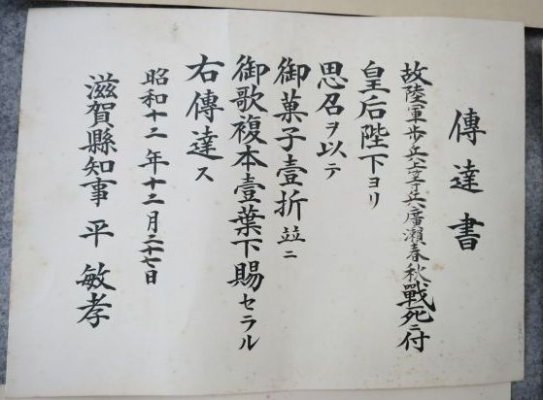 傳達書
故陸軍歩兵上等兵廣瀬春秋戰死ニ付
皇后陛下ヨリ
思召ヲ以テ
御菓子壹折竝ニ
御歌複本壹葉下賜セラル
右傳達ス
昭和十二年十二月二十七日
滋賀縣知事 平敏孝